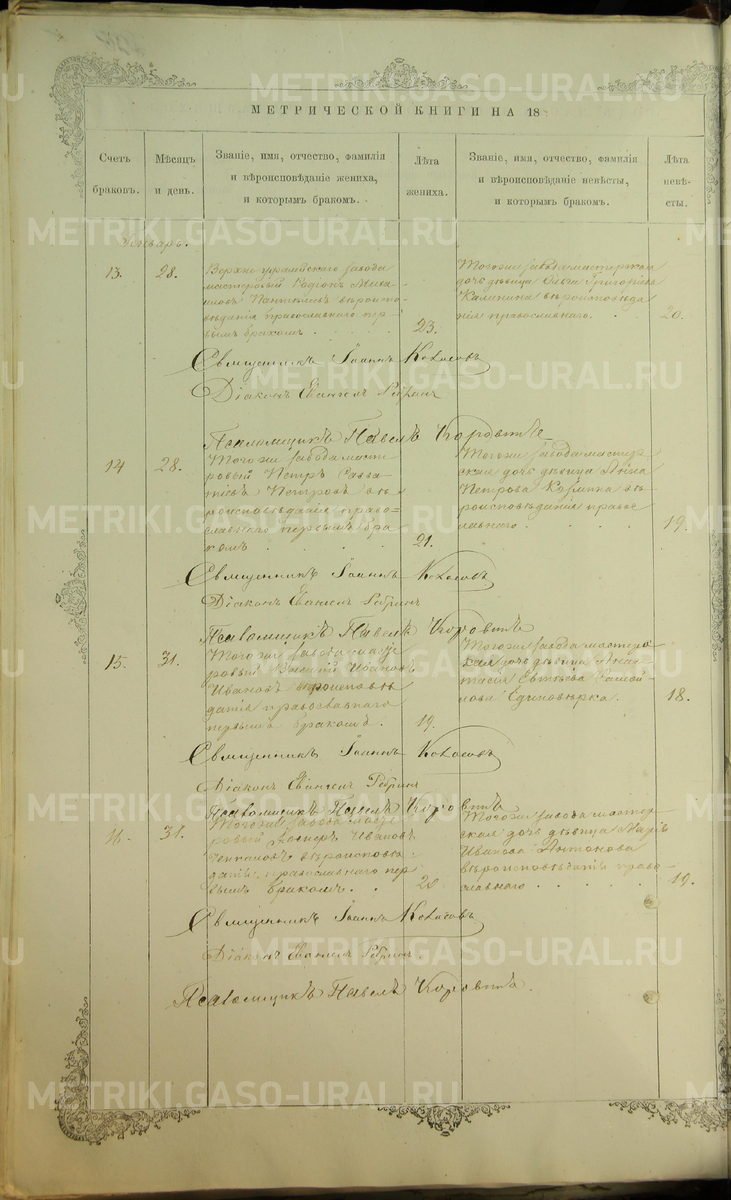 METRIKI.GASO-URAL.RU
МЕТРИЧЕСКОЙ КНИГИ НА 18
Счетъ браковъ.
Мѣсяцъ и день.
Званіе, имя, отчество, фамилія
и вѣроисповѣданіе жениха,
и которымъ бракомъ.
Лѣта жениха.
Званіе, имя, отчество, фамилія
и вѣроисповѣданіе невѣсты,
и которымъ бракомъ.
Лѣта невѣ-
сты.
Январь.
13.
28.
завода
мастеровый Родіонъ
вѣроиспо-
вѣданія православнаго пер
вымъ бракомъ
23.
Тогоже завода мастерская
дочь дѣвица Григорьева
Калинина вѣроисповѣда
нія православнаго.
20.
Священникъ Іоаннъ
Діаконъ
Псаломщикъ Павелъ
14
28.
Тогоже завода масте
ровый Петръ Савва
тіевъ Петровъ вѣ
роисповѣданія право=
славнаго первымъ бра
комъ
21.
Тогоже завода мастер-
ская дочь дѣвица Анна
Петрова вѣ-
роисповѣданія правос
лавнаго.
19.
Священникъ Іоаннъ
Діаконъ
Псаломщикъ Павелъ
15.
31.
Тогоже завода масте
ровый Ивановъ
Ивановъ вѣроисповѣ
данія православнаго
первымъ бракомъ.
19.
Тогоже завода мастеро
ская дочь дѣвица Анас
тасія Евтѣева Самой
лова Единовѣрка.
18.
Священникъ Іоаннъ
Діаконъ
Псаломщикъ Павелъ
16.
31.
Тогоже завода масте
ровый Ивановъ
вѣроисповѣ
данія православнаго пер
вымъ бракомъ.
20
Тогоже завода мастер-
ская дочь дѣвица Марія
Иванова Антонова
вѣроисповѣданія право-
славнаго
19.
Священникъ Іоаннъ
Діаконъ
Псаломщикъ Павелъ